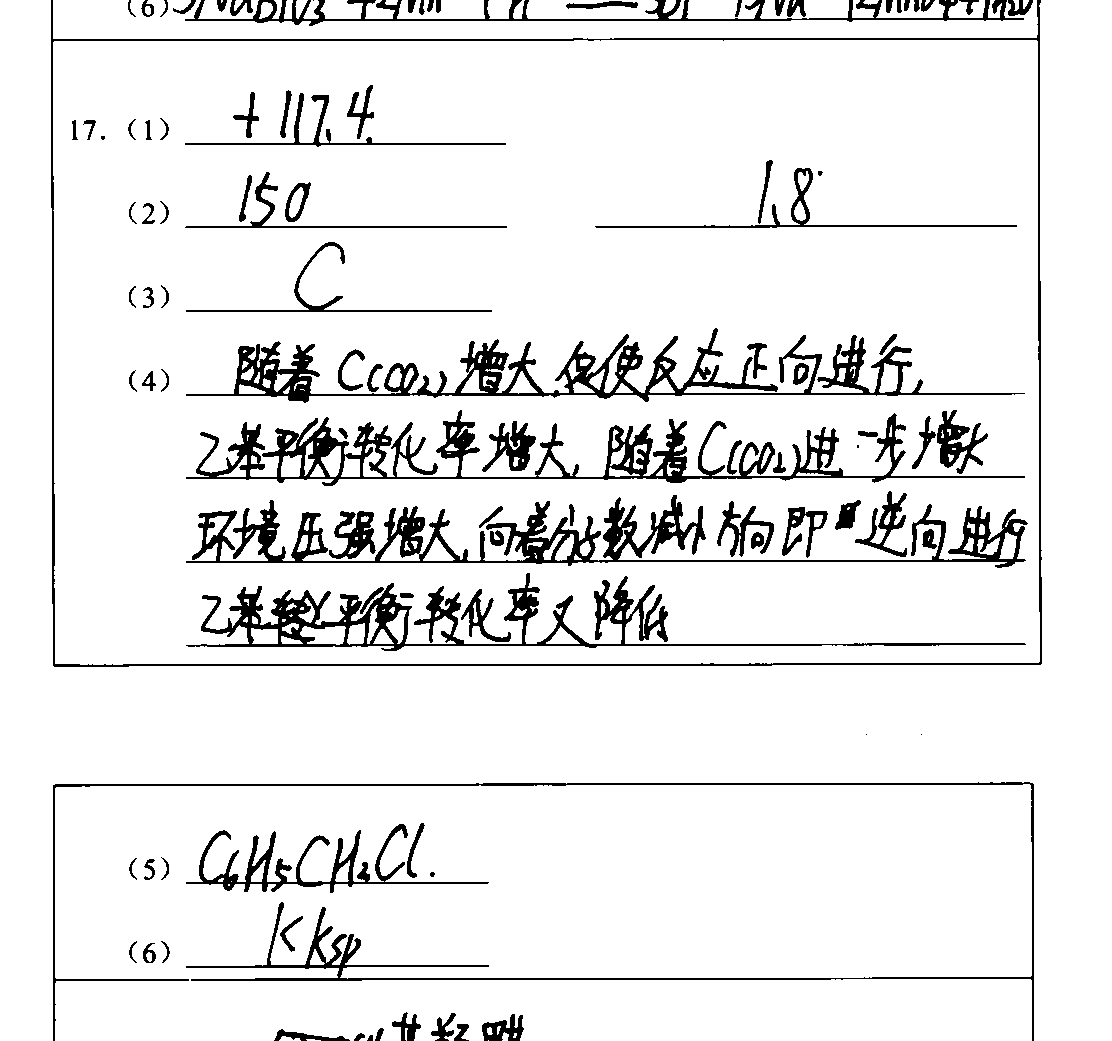 17. (1) +117.4.
(2) 150 1.8
(3) C
(4) 随着C(CO2)增大,促使反应正向进行,
乙苯平衡转化率增大,随着C(CO2)进一步增大
环境压强增大,向着分子数减小方向即逆向进行
乙苯平衡转化率又降低
(5) C6H5CH2Cl.
(6) K Ksp